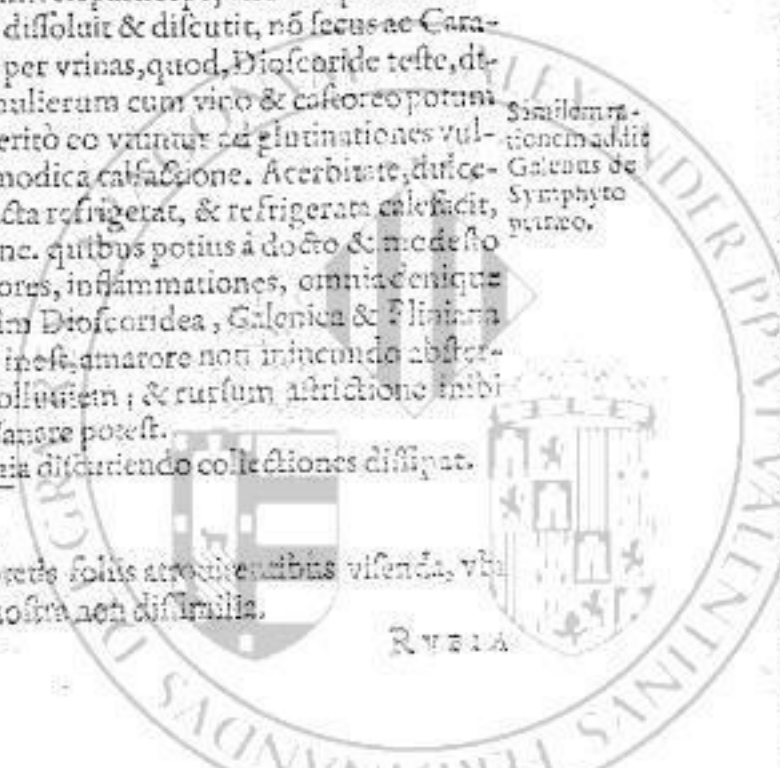 diſſoluit & diſcutit, nō ſecus ac Cara-
per vrinas, quod, Dioſcoride teſte, di-
mulierum cum vino & caſtoreo potum
eritò eo vtuntur ad glutinationes vul-
modica calfactione. Acerbitate, dulce-
cta refrigerat, & refrigerata calefacit,
nc. quibus potius à docto & modeſto
ores, inflammationes, omnia denique
im Dioſcoridea, Galenica & Pliniana
ineſt, amarore non iniucundo abſter-
olluuiem ; & rurſum aſtrictione inibi
ſanare poteſt.
diſcutiendo collectiones diſſipat.
foliis atrouirentibus viſenda, vbi
noſtra non diſſimilia.
RVBIA
Similem ra-
tionem addit
Galenus de
Symphyto
petræo.